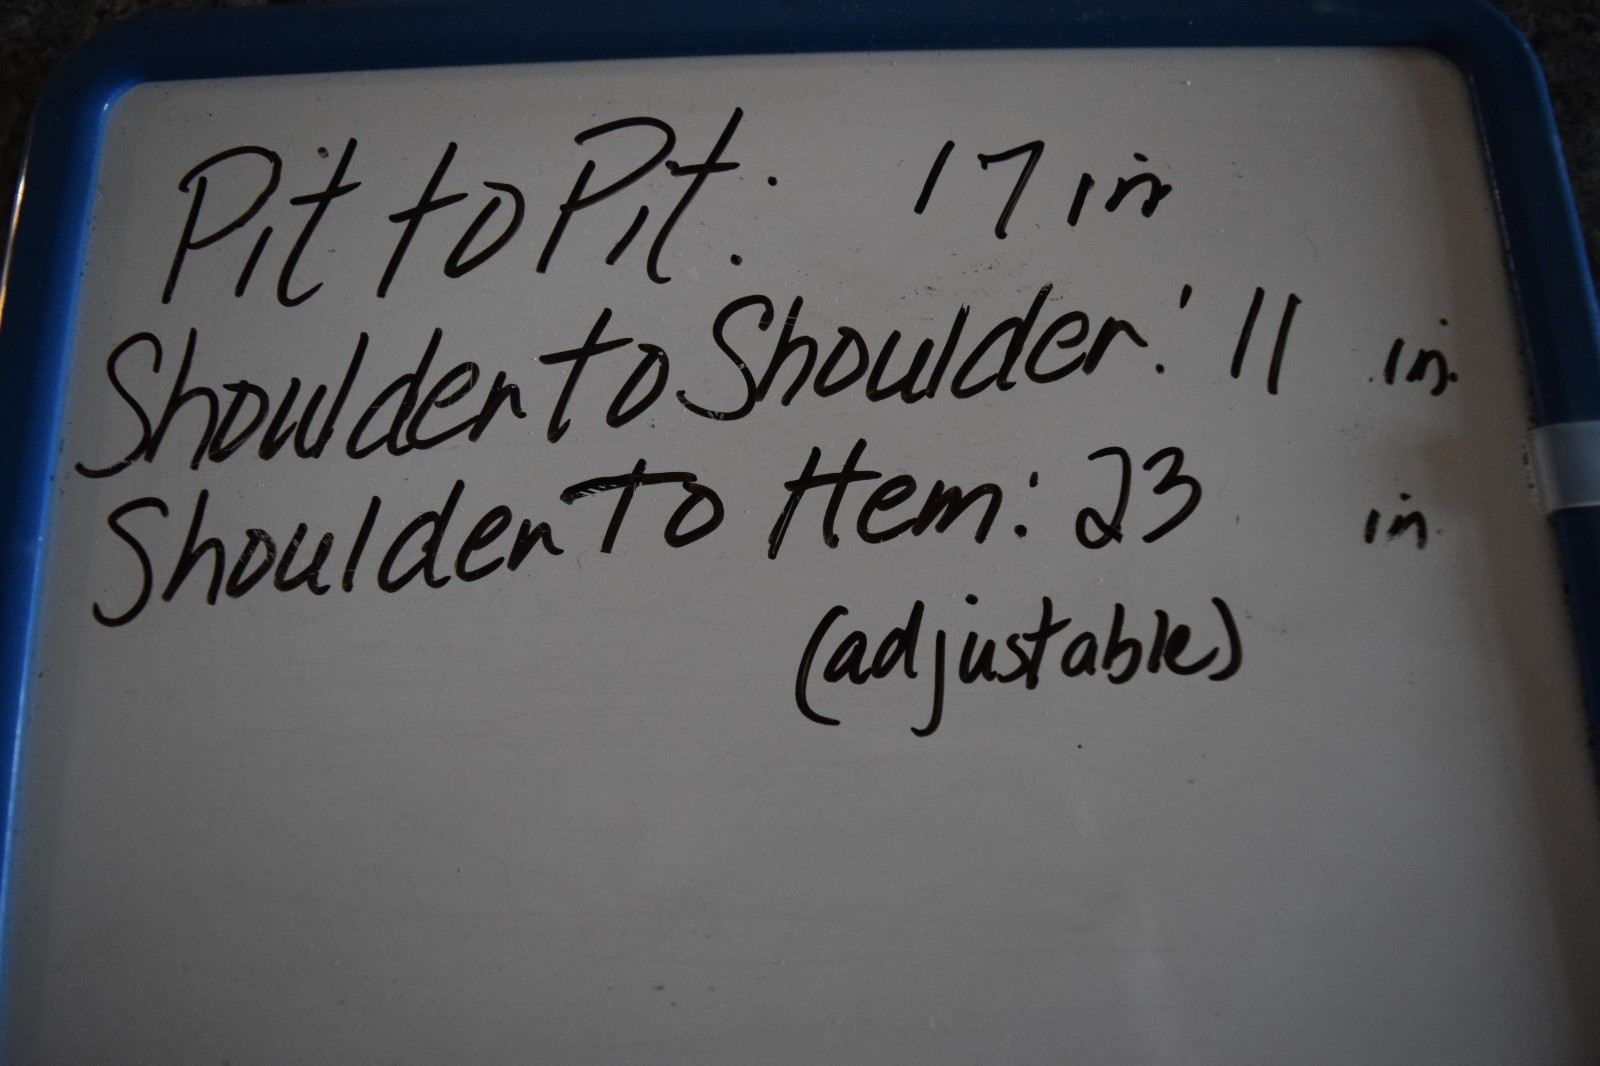 Pit to Pit: 17 in
Shoulder to Shoulder: 11 in.
Shoulder To Hem: 23 in
(adjustable)